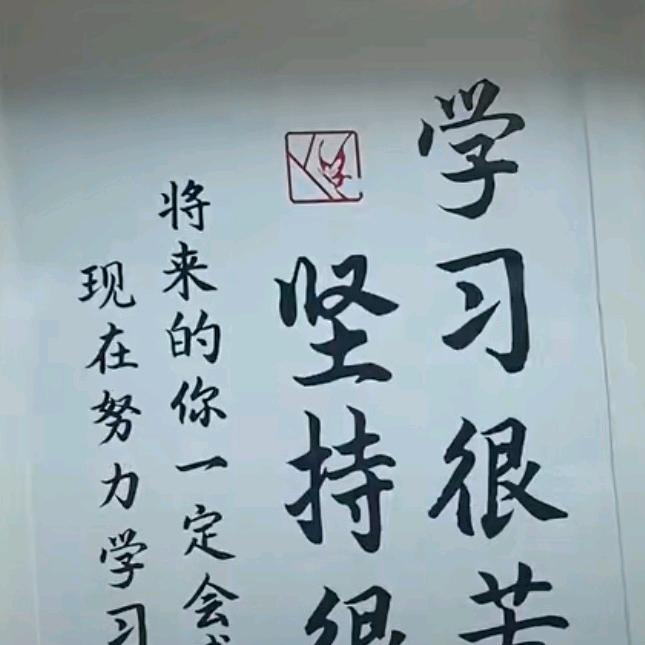 学习很苦
坚持很
将来的你一定会
现在努力学习